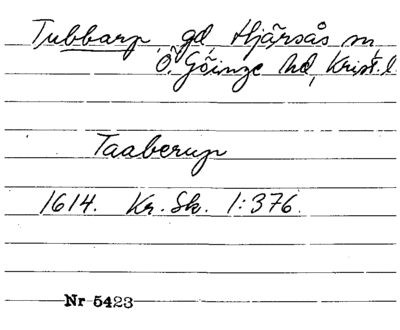 Tubbarp gd, Hjärsås sn,
Ö. Göinge hd, Krist. l.
Taaberup
1614. Kr. Sk. 1:376.
Nr 5423